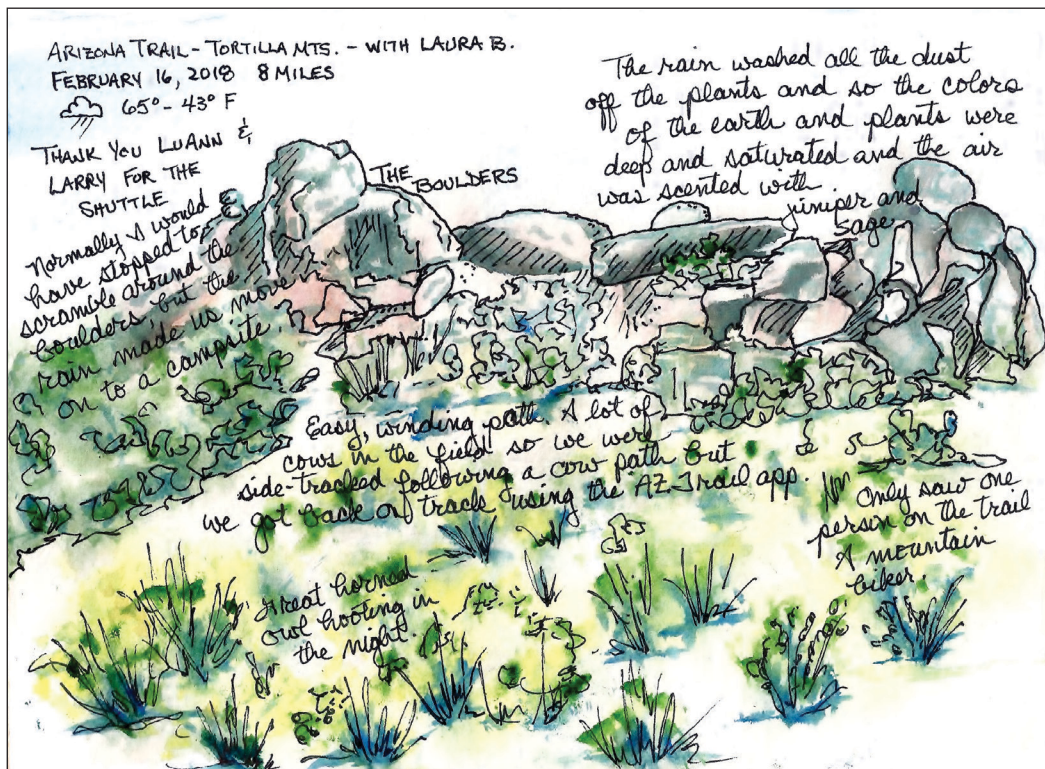 ARIZONA TRAIL - TORTILLA MTS. - WITH LAURA B.
FEBRUARY 16, 2018 8 MILES
65° - 43° F
THANK YOU LUANN &
LARRY FOR THE
SHUTTLE
Normally I would
have stopped to
scramble around the
boulders, but the
rain made us move
on to a campsite
THE
BOULDERS
The rain washed all the dust
off the plants and so the colors
of the earth and plants were
deep and saturated and the air
was scented with
juniper and
sage
Easy, winding path. A lot of
cows in the field so we were
side-tracked following a cow path but
we got back on track using the AZ Trail app.
Only saw one
person on the trail
A mountain
biker.
Great horned
owl hooting in
the night.